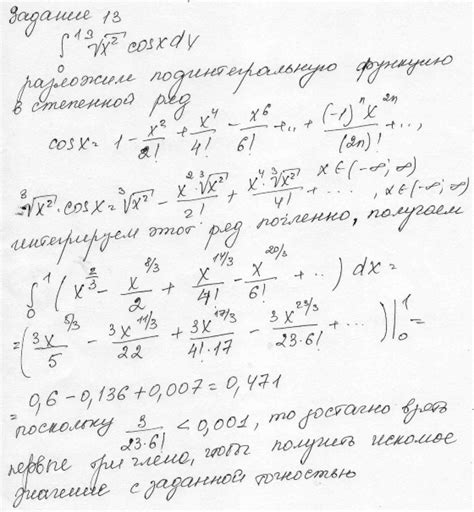 Задание 13
∫₀¹ ∛x² cosx dx
разложим подинтегральную функцию
в степенной ряд
cosx = 1 - x²/2! + x⁴/4! - x⁶/6! + .. + (-1)ⁿx²ⁿ/(2n)! + ..,
∛x² · cosx = ∛x² - x²·∛x²/2! + x⁴·∛x²/4! + ... x∈(-∞;∞) , x∈(-∞;∞)
интегрируем этот ряд почленно, получаем
∫₀¹ (x^(2/3) - x^(8/3)/2 + x^(14/3)/4! - x^(20/3)/6! + ..) dx =
= (3x^(5/3)/5 - 3x^(11/3)/22 + 3x^(17/3)/4!·17 - 3x^(23/3)/23·6! + ...)|₀¹ =
= 0,6 - 0,136 + 0,007 = 0,471
поскольку 3/23·6! < 0,001, то достачно взять
первые три члена, чтобы получить искомое
значение с заданной точностью